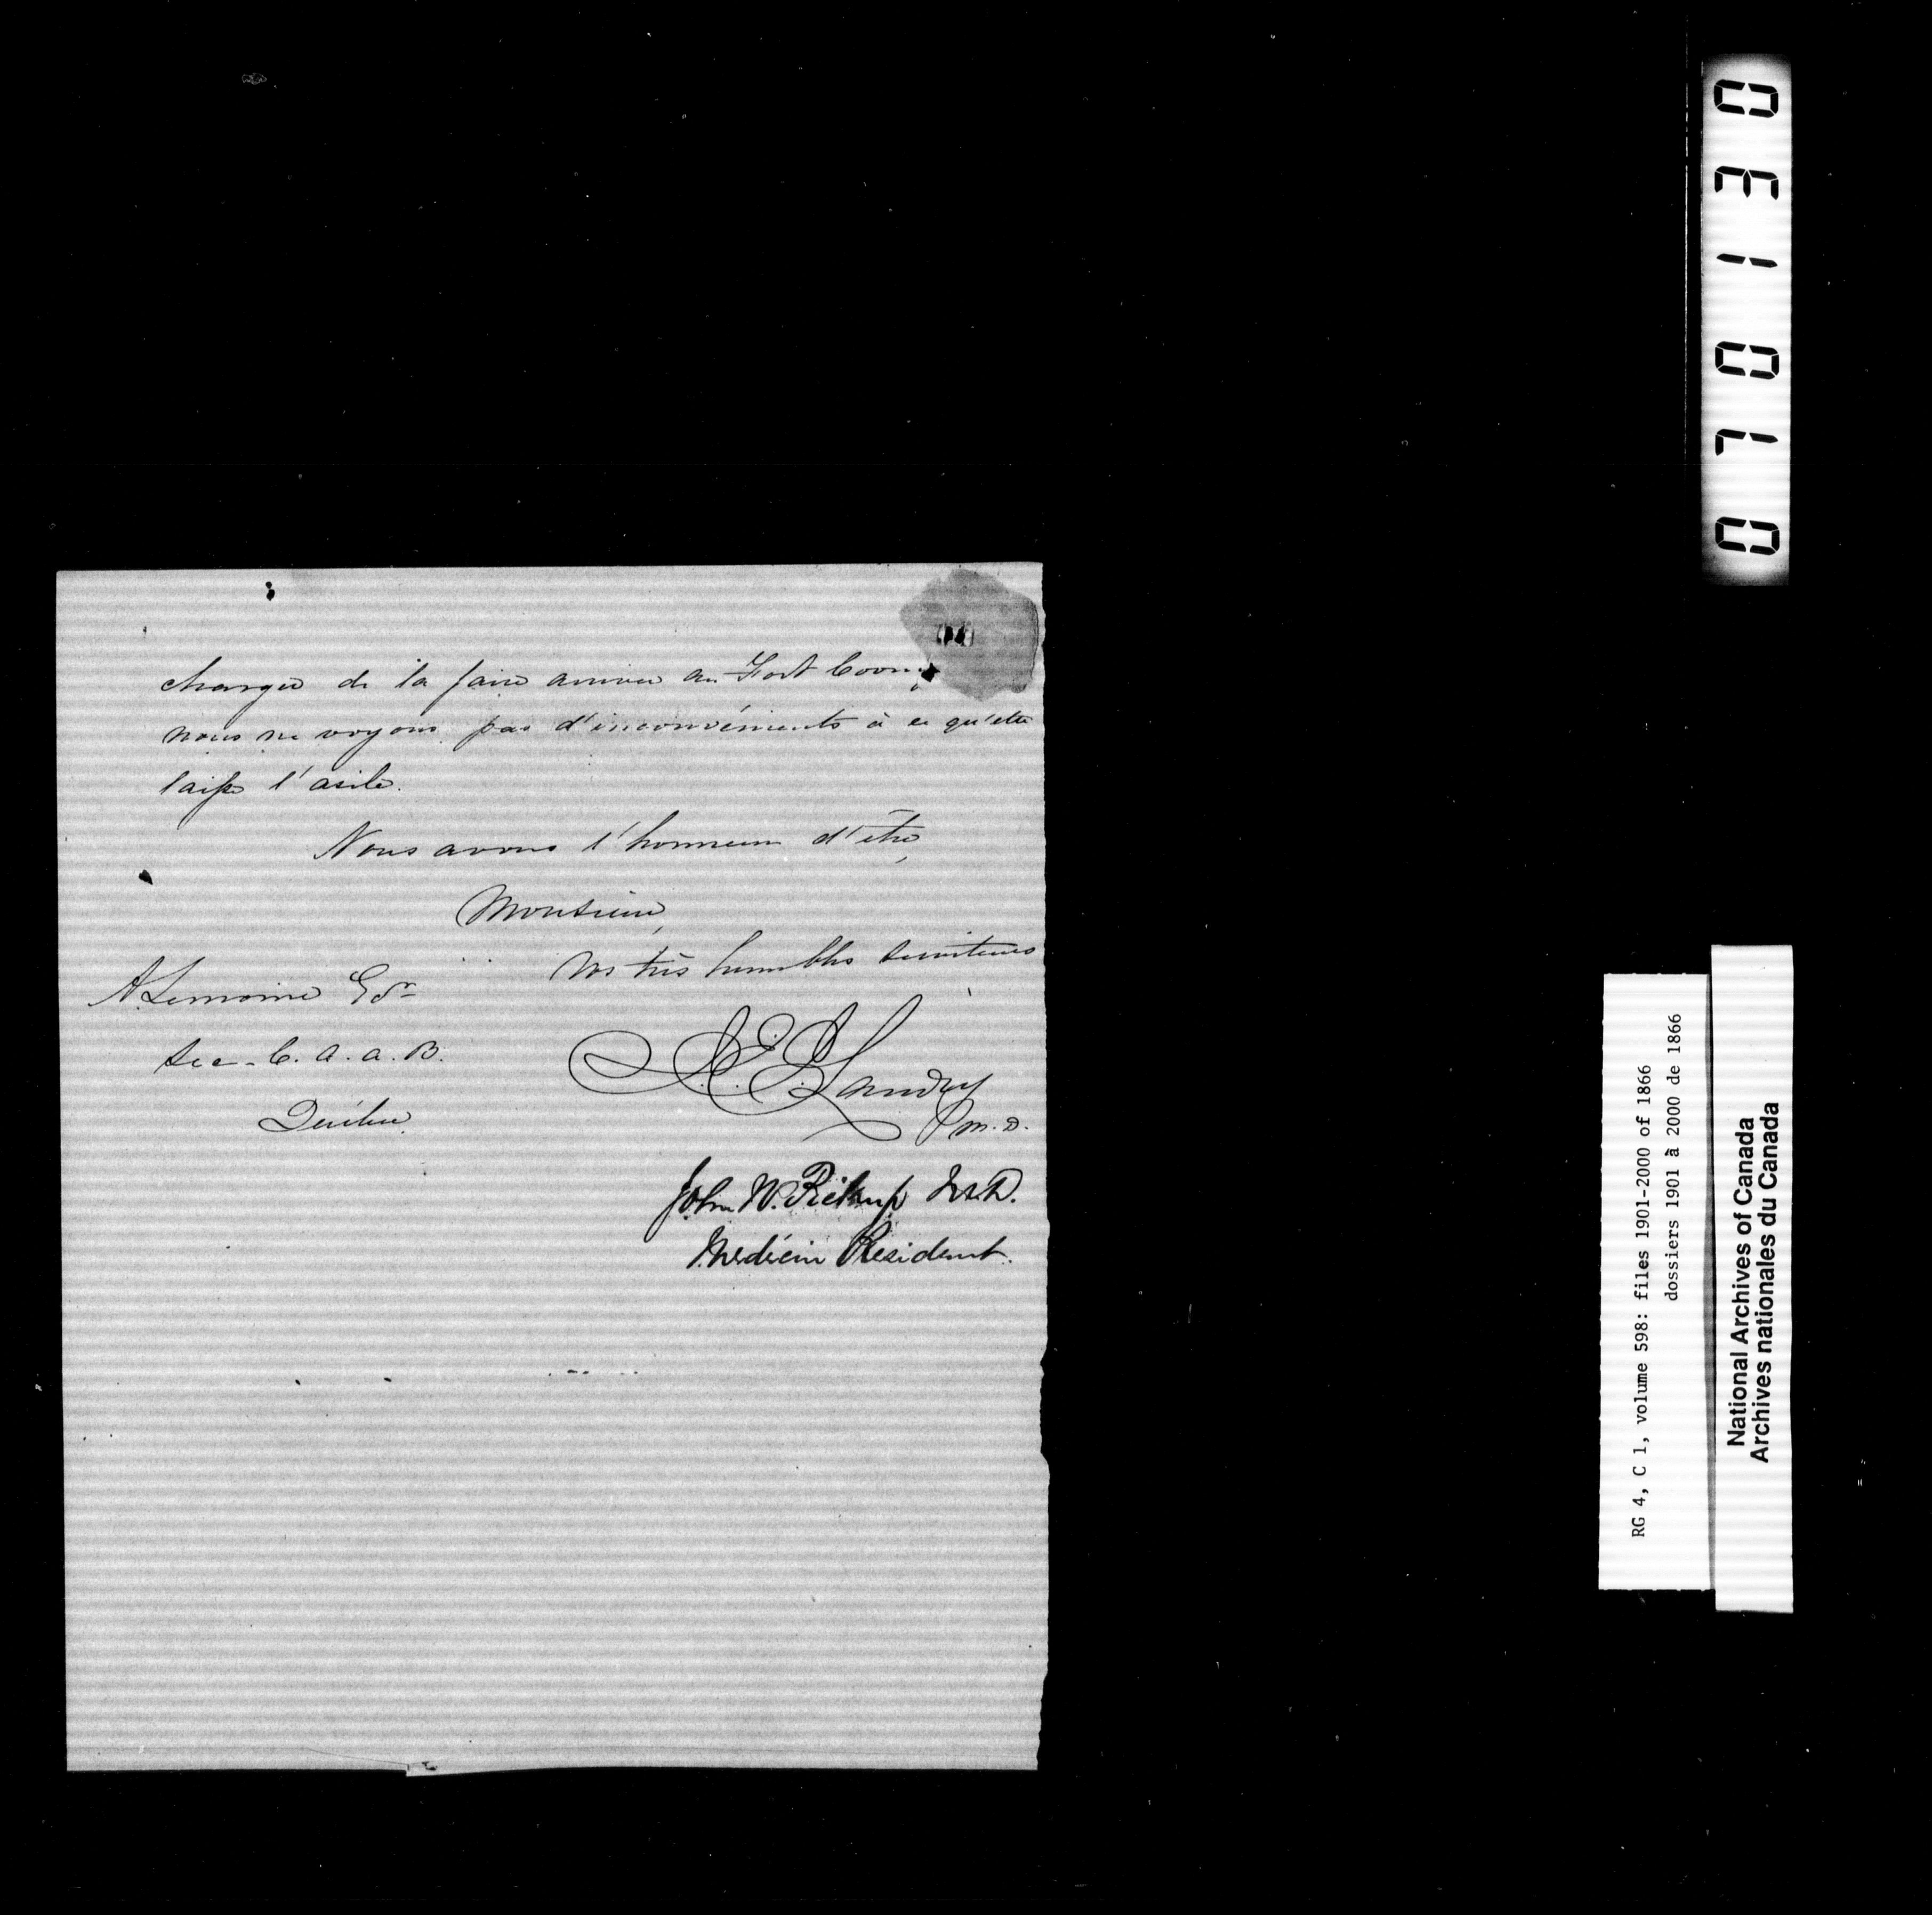 charger de la faire arriver au Fort Coving
nous ne voyons pas d'inconvénients à ce qu'elle
laisse l'asile.
Nous avons l'honneur d'être,
Monsieur,
Vos très humbles serviteurs
A. Lemoine Esr
Sec. C. A. a. B.
Québec.
J. E. Landry
M. D.
John W. Pickup M.D.
Médecin Resident.
03107 0
RG 4, C 1, volume 598: files 1901-2000 of 1866
dossiers 1901 à 2000 de 1866
National Archives of Canada
Archives nationales du Canada